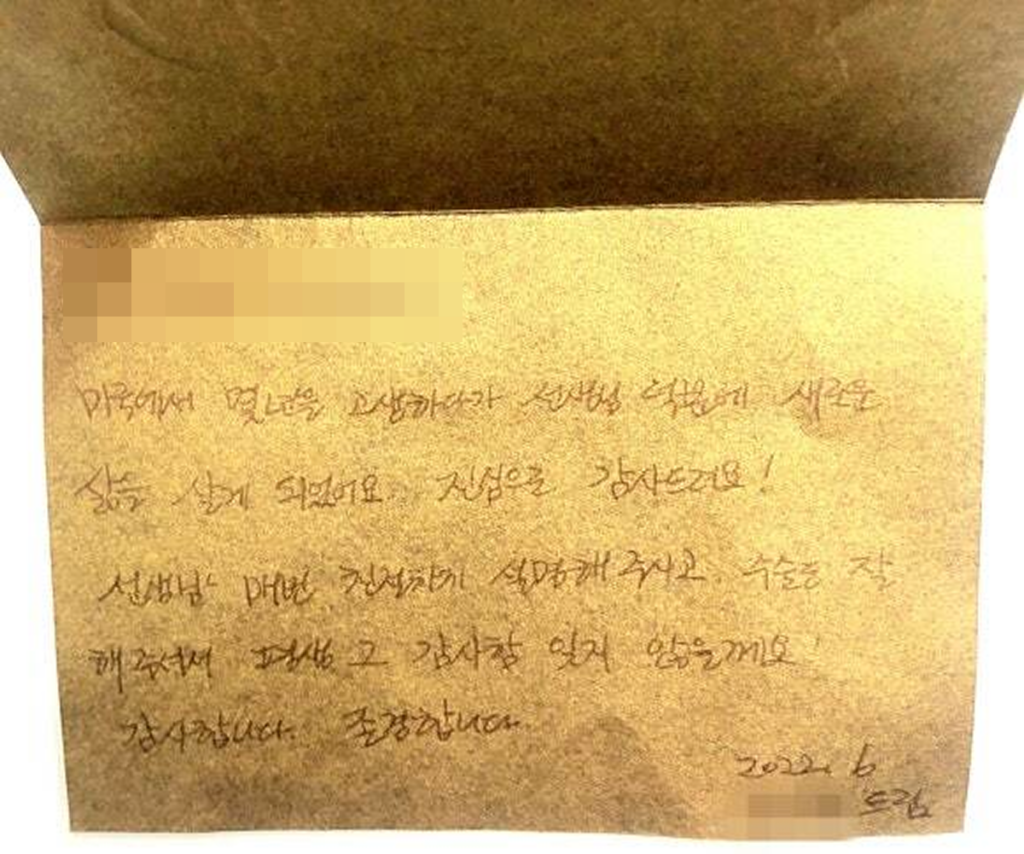 미국에서 몇년을 고생하다가 선생님 덕분에 새로운
삶을 살게 되었어요. 진심으로 감사드려요!
선생님 매번 친절하게 설명해 주시고, 수술도 잘
해주셔서 평생 그 감사함 잊지 않을게요!
감사합니다. 존경합니다.
2022. 6
드림